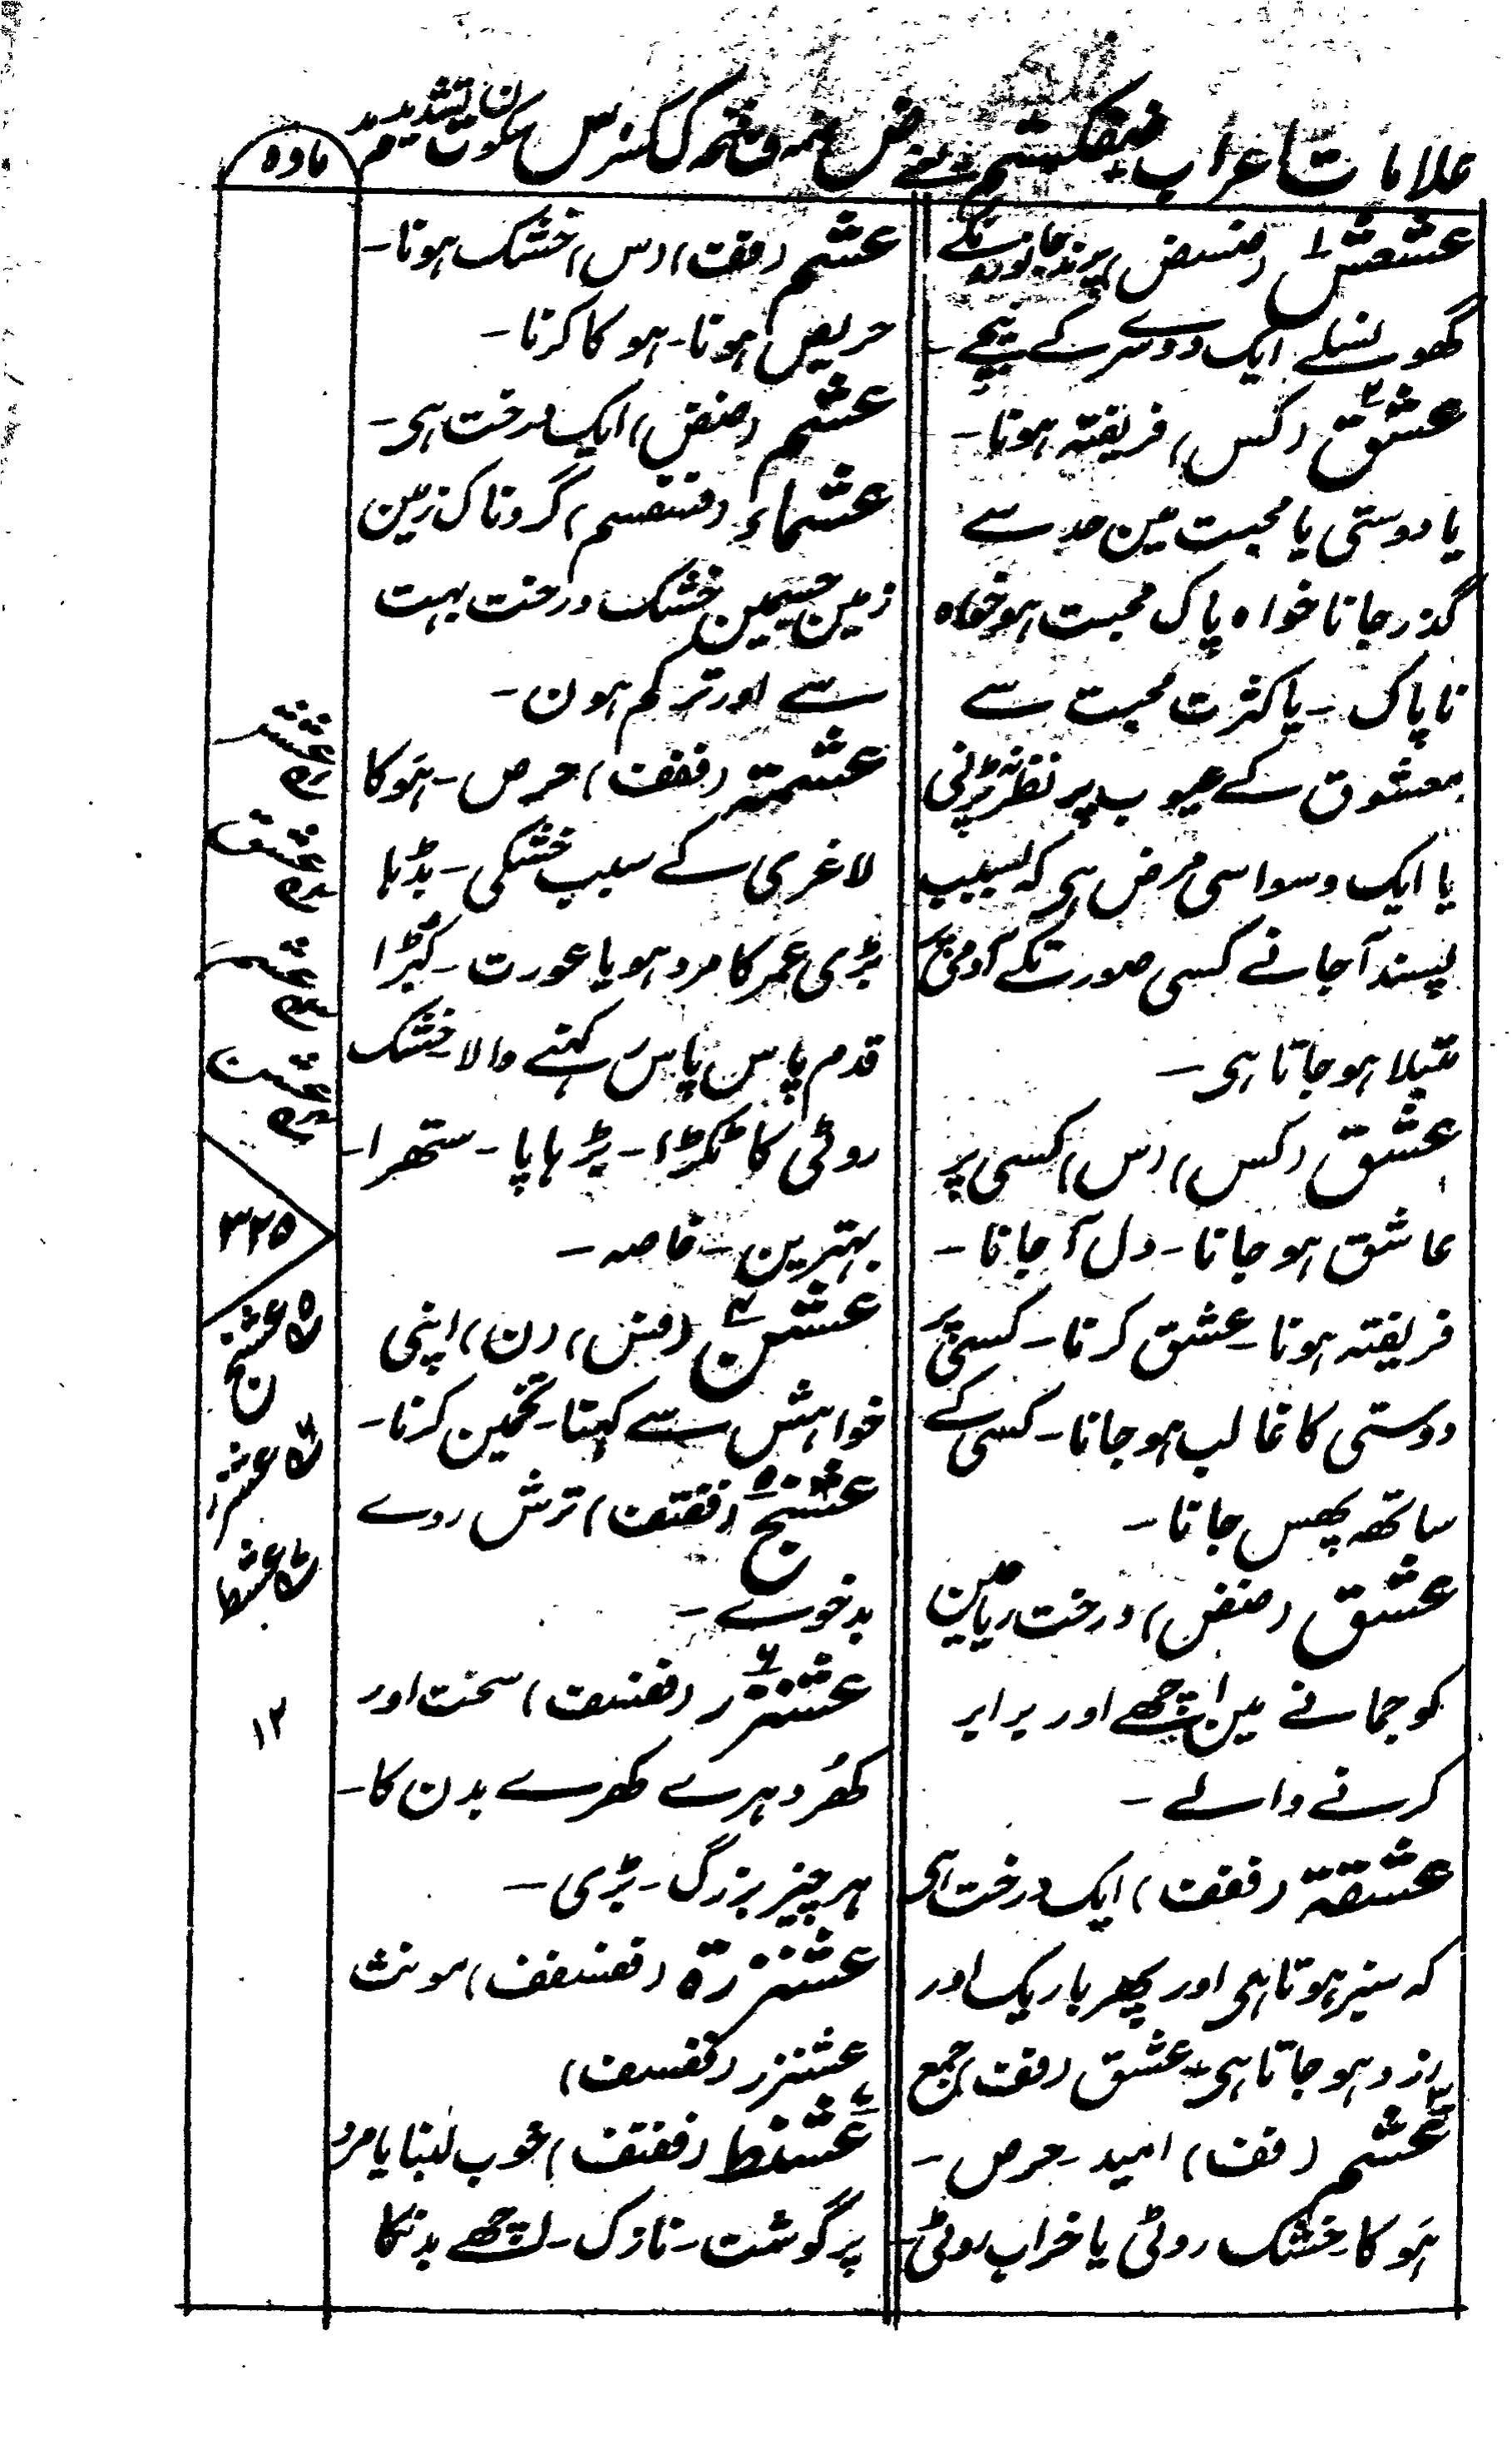 علامات اعراب ف فتح ض ضمہ ک کسرہ س سکون ت تشدید
مادہ
عشعش (ضسض) پرند جانورونکے
گھونسلے ایک دوسرے کے نیچے -
عشق (کس) فریفتہ ہونا -
یا دوستی یا محبت مین حد سے
گذر جانا خواہ پاک محبت ہو خواہ
ناپاک - یا کثرت محبت سے
معشوق کے عیوب پر نظر نہ پڑنی
یا ایک وسواسی مرض ہی کہ بسبب
پسند آجانے کسی صورت کے آدمی
مبتلا ہو جاتا ہی -
عشق (کس) (س) کسی پر
عاشق ہو جانا - دل آجانا -
فریفتہ ہونا - عشق کرنا - کسی پر
دوستی کا غالب ہو جانا - کسی کے
ساتھ پھس جانا -
عشق (ضض) درخت ریاحین
کو جمانے مین اچھے اور برابر
کرنے والے -
عشقة (ففف) ایک درخت ہی
کہ سبز ہوتا ہی اور پھر باریک اور
زرد ہو جاتا ہی - عشق (فف) جمع
عشم (فف) امید - حرص -
ہوکا - خشک روٹی یا خراب روٹی -
عشم (فف) (س) خشک ہونا -
حریص ہونا - ہوکا کرنا -
عشم (ضض) ایک درخت ہی -
عشماء گردناک زمین
زمین جسمین خشک درخت بہت
سے اور تر کم ہون -
عشمة (ففف) حرص - ہوکا
لاغری کے سبب خشکی - بڈہا
بڑی عمر کا مرد ہو یا عورت - کبڑا
قدم پاس پاس رکہنے والا - خشک
روٹی کا ٹکڑا - بڑہاپا - ستھرا -
بہترین - خاصہ -
عشن (فس) (ن) اپنی
خواہش سے کہنا - تخمین کرنا -
عشنج ترش روے
بدخوے -
عشنزر (ففسف) سخت اور
کھردہرے کھرے بدن کا -
ہر چیز بزرگ - بڑی -
عشنزرة (ففسفف) مونث
عشنزر (ففسف)
عشنط خوب لنبا یا مرد
پرگوشت - نازک - اچھے بدنکا
عشق
عشم
عشن
۳۲۵
عشنج
عشنزر
عشنط
۱۲